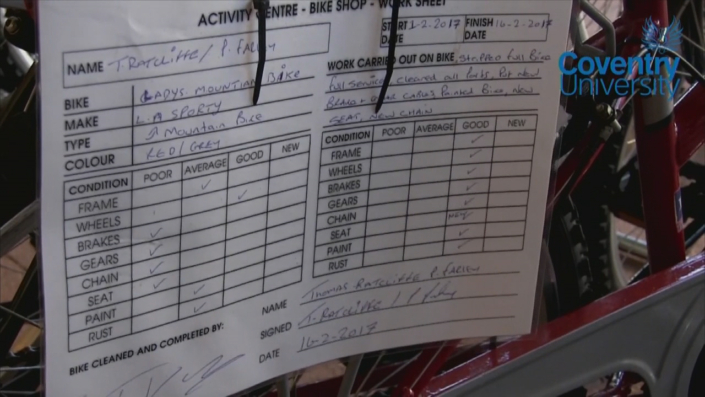 ACTIVITY CENTRE - BIKE SHOP - WORK SHEET
NAME T RATCLIFFE / P. FARLEY
START DATE 1-2-2017 FINISH DATE 14-2-2017
BIKE LADYS MOUNTAIN BIKE
MAKE L.A SPORTY
TYPE A Mountain Bike
COLOUR RED/GREY
WORK CARRIED OUT ON BIKE, Stripped full Bike
full service, cleaned all Parts, Put New
Brake + Gear cables Painted Bike, New
SEAT, NEW CHAIN
CONDITION POOR AVERAGE GOOD NEW
FRAME ✓
WHEELS ✓
BRAKES ✓
GEARS ✓
CHAIN ✓
SEAT ✓
PAINT ✓
RUST ✓
CONDITION POOR AVERAGE GOOD NEW
FRAME ✓
WHEELS ✓
BRAKES ✓
GEARS ✓
CHAIN ✓
SEAT NEW
PAINT ✓
RUST ✓
BIKE CLEANED AND COMPLETED BY:
NAME Thomas RATCLIFFE P. FARLEY
SIGNED T. RATCLIFFE / P. Farley
DATE 14-2-2017
Coventry
University